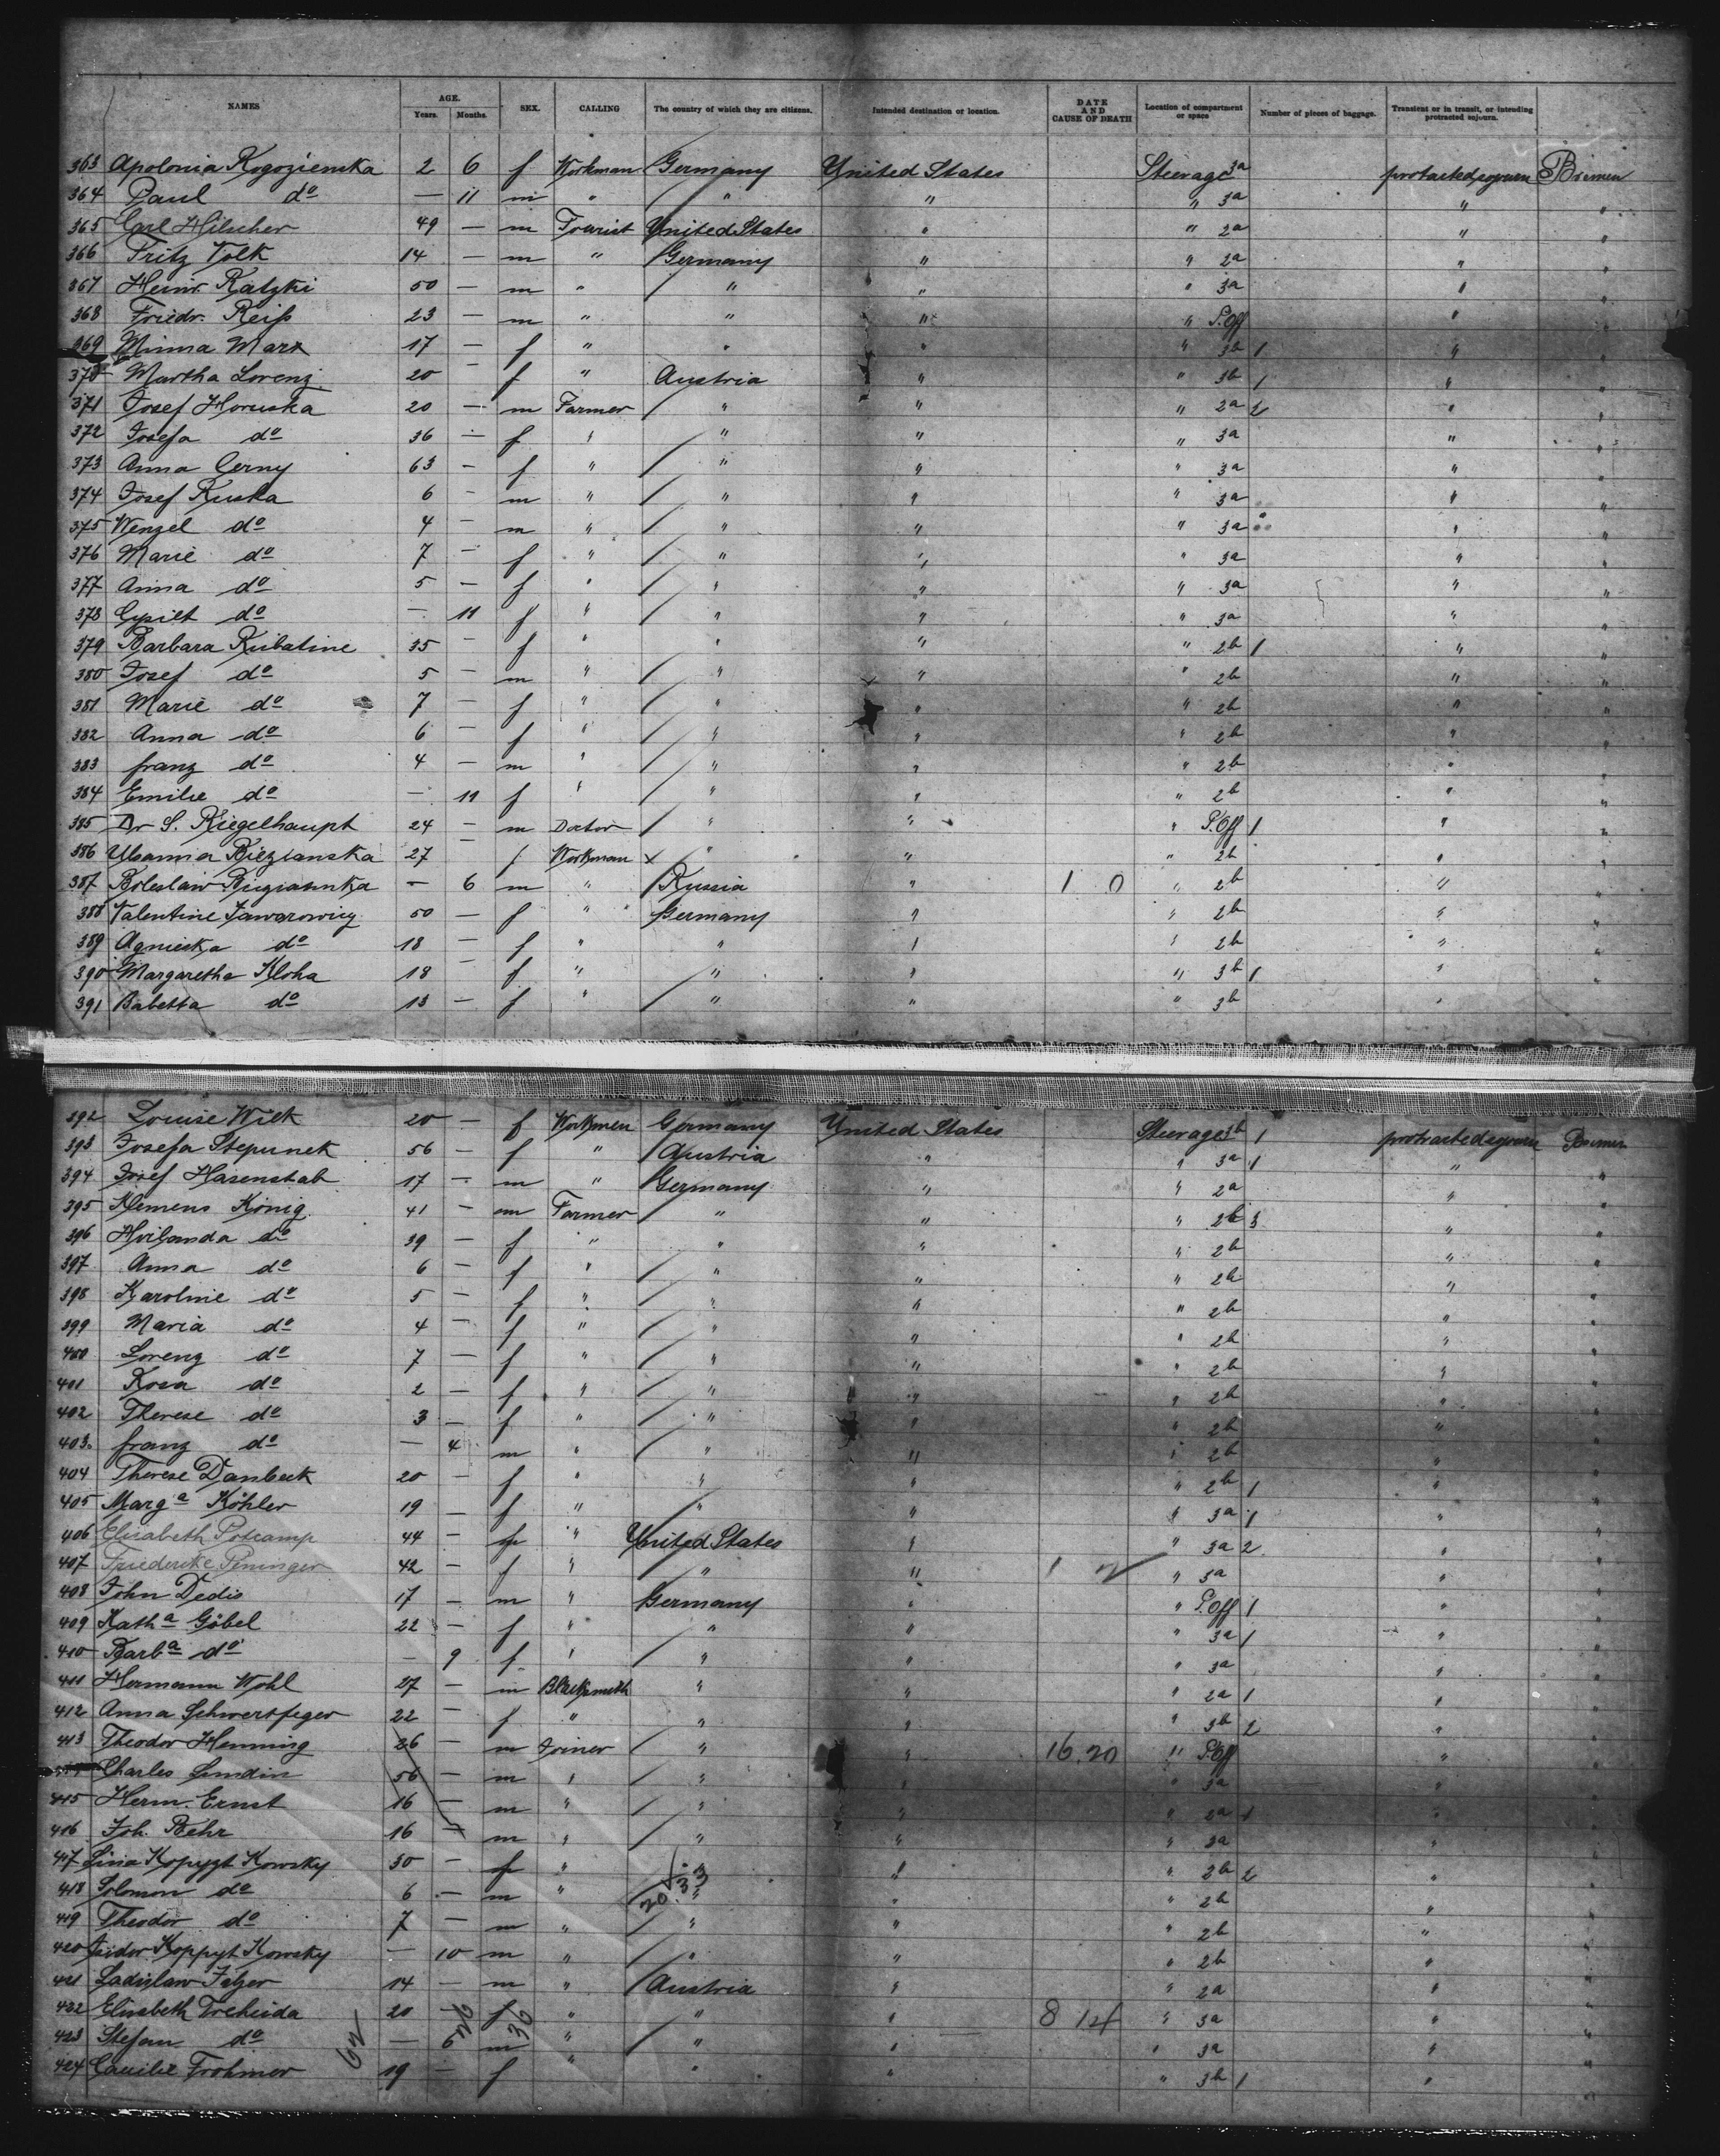 NAMES AGE. SEX. CALLING The country of which they are citizens. Intended destination or location. DATE AND CAUSE OF DEATH Location of compartment or space Number of pieces of baggage. Transient or in transit, or intending protracted sojourn.
Years. Months.
363 Apolonia Rogozienska 2 6 f Workman Germany United States Steerage 3a protracted sojourn Bremen
364 Paul do — 11 m " " " " 3a " "
365 Carl Hilscher 49 — m Tourist United States " " 2a " "
366 Fritz Volk 14 — m " Germany " " 2a " "
367 Heinr. Ratzki 50 — m " " " " 3a " "
368 Friedr. Reiß 23 — m " " " " P.Off " "
369 Minna Marx 17 — f " " " " 3b 1 " "
370 Martha Lorenz 20 — f " Austria " " 3b 1 " "
371 Josef Horuska 20 — m Farmer " " " 2a 2 " "
372 Josefa do 36 — f " " " " 3a " "
373 Anna Cerny 63 — f " " " " 3a " "
374 Josef Ruska 6 — m " " " " 3a " "
375 Wenzel do 4 — m " " " " 3a " "
376 Marie do 7 — f " " " " 3a " "
377 Anna do 5 — f " " " " 3a " "
378 do — 11 f " " " " 3a " "
379 Barbara Kubatine 35 — f " " " " 2b 1 " "
380 Josef do 5 — m " " " " 2b " "
381 Marie do 7 — f " " " " 2b " "
382 Anna do 6 — f " " " " 2b " "
383 franz do 4 — m " " " " 2b " "
384 Emilie do — 11 f " " " " 2b " "
385 Dr S. Riegelhaupt 24 — m Doctor " " " P.Off 1 " "
386 27 — f Workman x " " " 2b " "
387 Boleslaw — 6 m " Russia " 1 0 " 2b " "
388 Valentine Jawarowicz 50 — f " Germany " " 2b " "
389 Agnieska do 18 — f " " " " 2b " "
390 Margaretha Kloha 18 — f " " " " 3b 1 " "
391 Babetta do 13 — f " " " " 3b " "
392 Louise Wilk 20 — f Workmen Germany United States Steerage 3b 1 protracted sojourn Bremen
393 Josefa Stepunek 56 — f " Austria " " 3a 1 " "
394 Josef Hasenstab 17 — m " Germany " " 2a " "
395 Klemens König 41 — m Farmer " " " 2b 3 " "
396 Hvilanda do 39 — f " " " " 2b " "
397 Anna do 6 — f " " " " 2b " "
398 Karoline do 5 — f " " " " 2b " "
399 Maria do 4 — f " " " " 2b " "
400 Lorenz do 7 — f " " " " 2b " "
401 Rosa do 2 — f " " " " 2b " "
402 Therese do 3 — f " " " " 2b " "
403. franz do — 4 m " " " " 2b " "
404 Therese Danbeck 20 — f " " " " 2b 1 " "
405 Marga Köhler 19 — f " " " " 3a 1 " "
406 Elisabeth Potcamp 44 — f " United States " " 3a 2 " "
407 Friedericke Peninger 42 — f " " " 1 2 " 3a " "
408 John Dedio 17 — m " Germany " " P.Off 1 " "
409 Katha Göbel 22 — f " " " " 3a 1 " "
410 Barba do — 9 f " " " " 3a " "
411 Hermann Wohl 27 — m Blacksmith " " " 2a 1 " "
412 Anna Schwertfeger 22 — f " " " " 3b 2 " "
413 Theodor Henning 26 — m Joiner " " 16 20 " P.Off " "
Charles Lundin 56 — m " " " " 3a " "
415 Herm. Ernst 16 — m " " " " 2a 1 " "
416 Joh. Behr 16 — m " " " " 3a " "
417 Lina Kopyzt Kowsky 30 — f " " " " 2b 2 " "
418 Solomon do 6 — m " 20.33 " " " 2b " "
419 Theodor do 7 — m " " " " 2b " "
420 Isidor Koppyt Kowsky — 10 m " " " " 2b " "
421 Ladislaw 14 — m " Austria " " 2a " "
422 Elisabeth Treheida 20 — f " " " 8 14 " 3a " "
423 Stefan do — 6 m " " " " 3a " "
424 Frohmer 19 — f " " " " 3b 1 " "
62 26 36